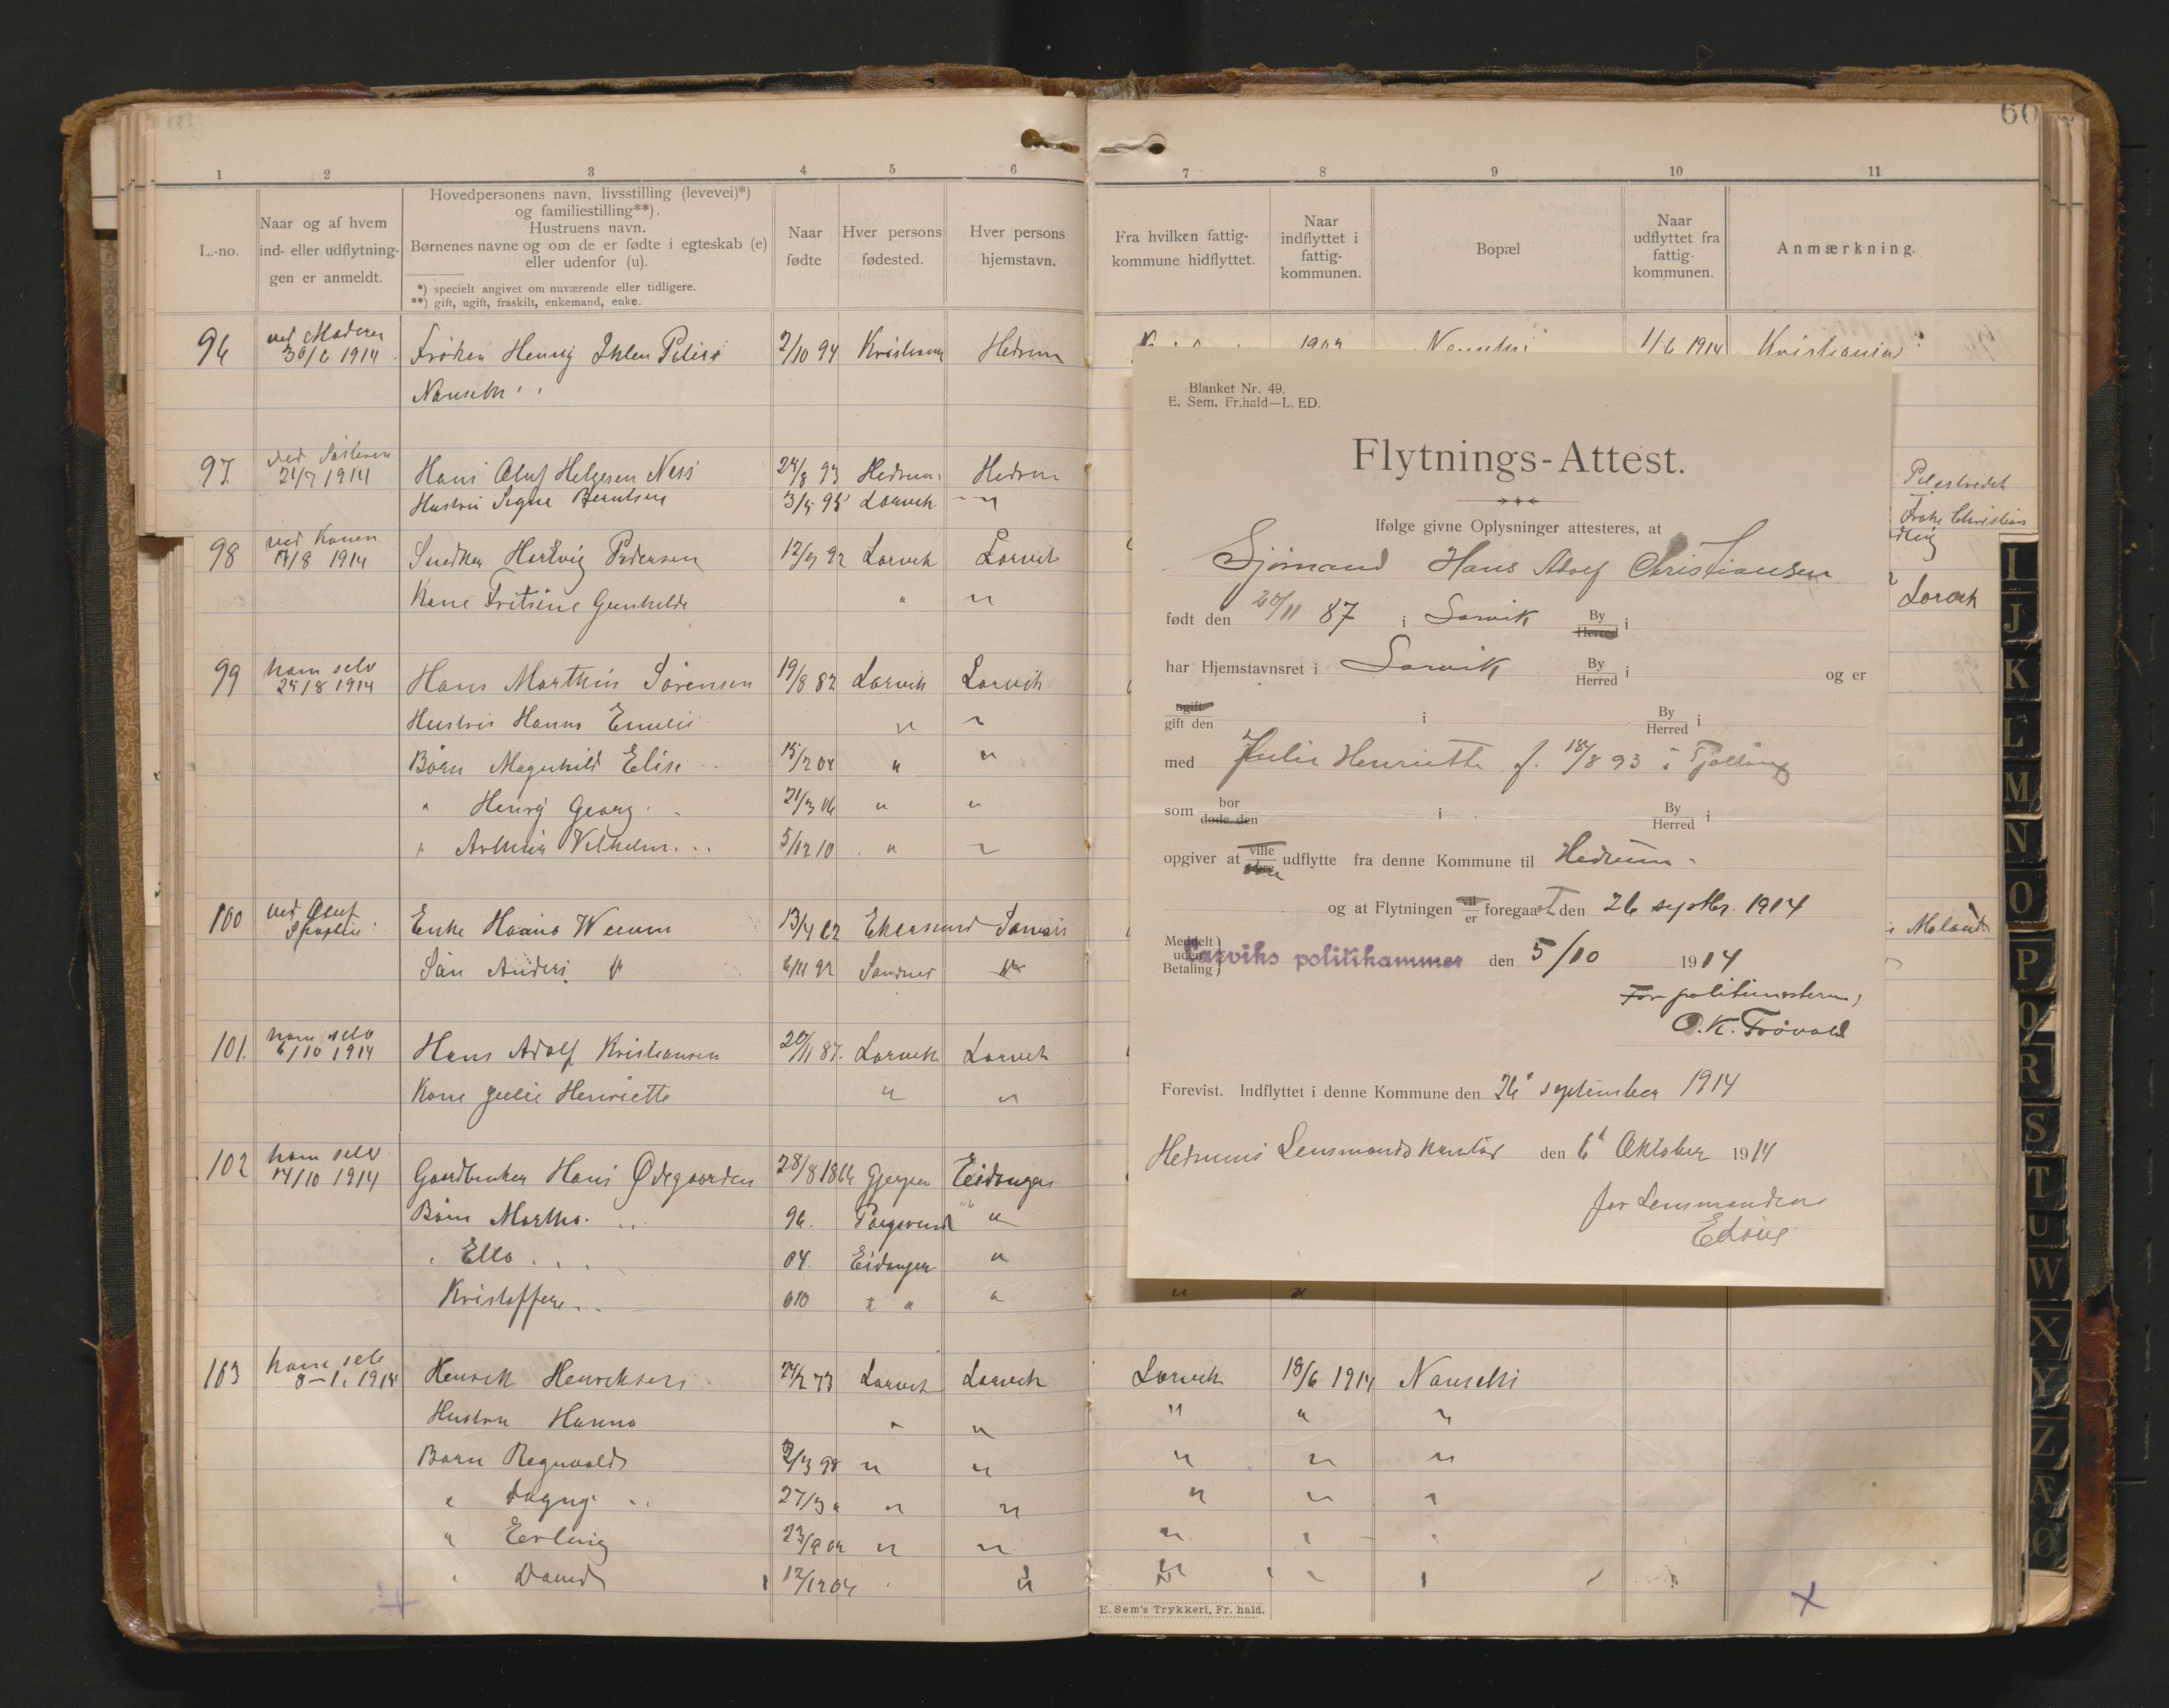 60
1 2 3 4 5 6 7 8 9 10 11
L.-no.
Naar og af hvem
ind- eller udflytning-
gen er anmeldt.
Hovedpersonens navn, livsstilling (levevei)*)
og familiestilling**).
Hustruens navn.
Børnenes navne og om de er fødte i egteskab (e)
eller udenfor (u).
*) specielt angivet om nuværende eller tidligere.
**) gift, ugift, fraskilt, enkemand, enke.
Naar
fødte
Hver persons
fødested.
Hver persons
hjemstavn.
Fra hvilken fattig-
kommune hidflyttet.
Naar
indflyttet i
fattig-
kommunen.
Bopæl
Naar
udflyttet fra
fattig-
kommunen.
Anmærkning.
96 ved Moderen
30/6 1914 Frøken Henny Ihlen 2/10 94 Hedrum 1/6 1914 Kristiania
97 ved
21/7 1914 Hans Oluf Helgesen Ness 93 Hedrum Hedrum
Hustru Signe Berntsen 95 Larvik "
98 ved Konen
8 1914 Snedker Hartvig Pedersen 92 Larvik Larvik
Kone Fritsine Gunhilde " "
99 ham selv
25/8 1914 Hans Marthin Sørensen 19/8 82 Larvik Larvik
Hustru Hanna Emelie " "
Børn Magnhild Elise 15/2 04 " "
" Henry Georg 21/3 06 " "
" Arthur Vilhelm 5/12 10 " "
100 ved Oluf
Enke Hanna 13/4 62 Ekersund
Søn Anders 6/11 92
101. ham selv
6/10 1914 Hans Adolf Kristiansen 20/11 87. Larvik Larvik
Kone Julie Henriette " "
102 ham selv
14/10 1914 Gaardbruker Hans Ødegaarden 28/8 1866 Gjerpen Eidanger
Børn Martha 96. Porsgrund "
" Ella 04. Eidanger "
Kristoffer 010 " "
103 ham selv
Henrik Henriksen 73 Larvik Larvik Larvik 18/6 1914 Nanseth
Hustru Hanna " " " " "
Børn Ragnvald 98 " " " " "
" Dagny 27/3 " " " " " "
" Erling " " "
" David 12/12 04
E. Sem's Trykkeri, Fr. hald.
Blanket Nr. 49.
E. Sem, Fr.hald—L. ED.
Flytnings-Attest.
Ifølge givne Oplysninger attesteres, at
Sjømand Hans Adolf Christiansen
født den 20/11 87 i Larvik By Herred i
har Hjemstavnsret i Larvik By Herred i og er
ugift
gift den i By Herred i
med Julie Henriette f. 18/8 93 i Tjølling
som bor døde den i By Herred i
opgiver at ville udflytte fra denne Kommune til Hedrum
og at Flytningen vil er foregaaet den 26 septbr. 1914
Meddelt
uden
Betaling
Larviks politikammer den 5/10 1914
For politimesteren,
O.K. Frøvold
Forevist. Indflyttet i denne Kommune den 26 september 1914
Hedrums Lensmandskontor den 6 Oktober 1914
for Lensmanden
Larvik
I
J
K
L
M
N
O
P
Q
R
S
T
U
W
X
Y
Z
Æ
Ø